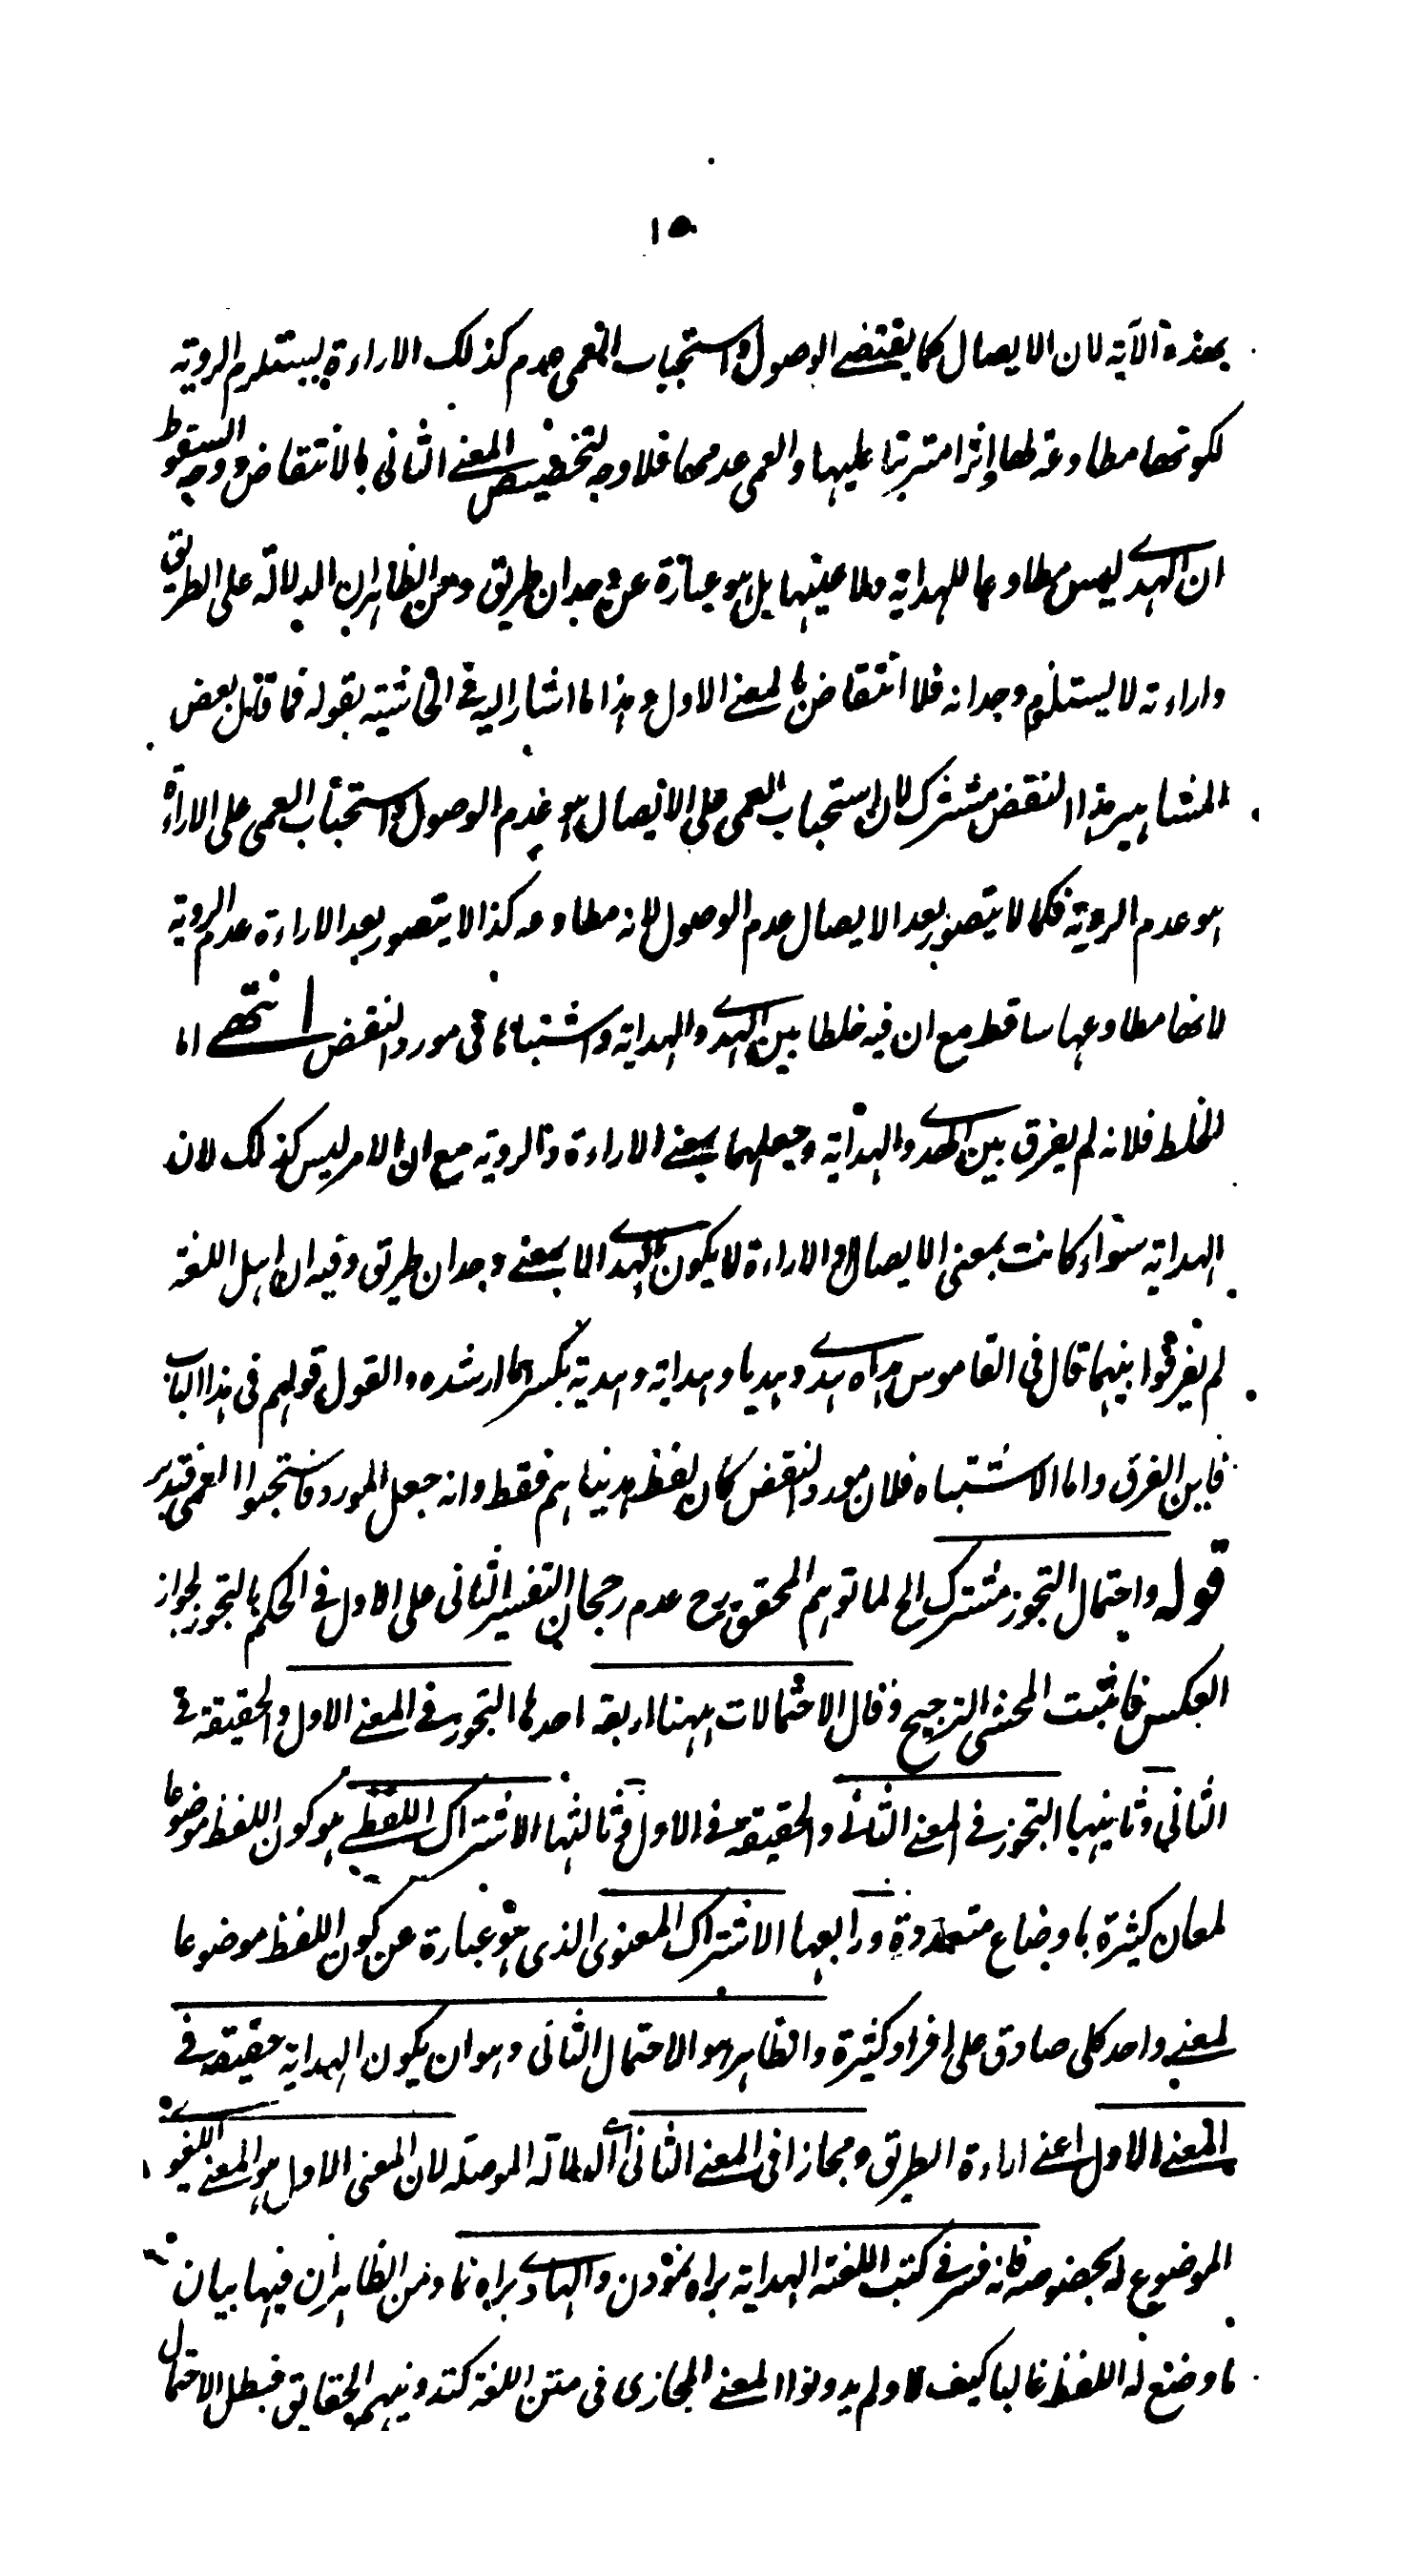 ١٥
بهذه الآية لان الايصال كما يقتضى الوصول واستحباب العمى عدم كذلك الاراءة يستلزم الروية
لكونها مطاوعة لها واثرا مترتبا عليها والعمى عدمها فلا وجه لتخصيص المعنى الثانى بالانتقاض ووجه السقوط
ان الهدى ليس مطاوعا للهداية ولا عينها بل هو عبارة عن وجدان طريق ومن الظاهر ان الدلالة على الطريق
واراءته لا يستلزم وجدانه فلا انتقاض بالمعنى الاول وهذا ما اشار اليه فى الحاشية بقوله فما قال بعض
المشاهير هذا النقض مشترك لان استحباب العمى على الايصال هو عدم الوصول واستحباب العمى على الاراءة
هو عدم الروية فكما لا يتصور بعد الايصال عدم الوصول لانه مطاوعه كذا لا يتصور بعد الاراءة عدم الروية
لانها مطاوعها ساقط مع ان فيه خلطا بين الهدى والهداية واشتباها فى مورد النقض انتهى اما
الخلط فلانه لم يفرق بين الهدى والهداية وجعلهما بمعنى الاراءة والروية مع ان الامر ليس كذلك لان
الهداية سواء كانت بمعنى الايصال او الاراءة لا يكون الهدى الا بمعنى وجدان طريق وفيه ان اهل اللغة
لم يفرقوا بينهما قال فى القاموس هداه هدى وهديا وهداية وهدية بكسرهما ارشده والقول قولهم فى هذا الباب
فاين الفرق واما الاشتباه فلان مورد النقض كان لفظ هديناهم فقط وانه جعل المورد فاستحبوا العمى فتدبر
قوله واحتمال التجوز مشترك الخ لما توهم المحقق رح عدم رجحان التفسير الثانى على الاول فى الحكم بالتجوز لجواز
العكس فاثبت المحشى الترجيح وقال الاحتمالات ههنا اربعة احدها التجوز فى المعنى الاول والحقيقة فى
الثانى وثانيها التجوز فى المعنى الثانى والحقيقة فى الاول وثالثها الاشتراك اللفظى هو كون اللفظ موضوعا
لمعان كثيرة باوضاع متعددة ورابعها الاشتراك المعنوى الذى هو عبارة عن كون اللفظ موضوعا
لمعنى واحد كلى صادق على افراد كثيرة والظاهر هو الاحتمال الثانى وهو ان يكون الهداية حقيقة فى
المعنى الاول اعنى اراءة الطريق ومجازا فى المعنى الثانى اى الدلالة الموصلة لان المعنى الاول هو المعنى اللغوى
الموضوع له بخصوصه فانه فسر فى كتب اللغة الهداية براه نمودن والهادى براه نما ومن الظاهر ان فيها بيان
ما وضع له اللفظ غالبا كيف لا ولم يدونوا المعنى المجازى فى متن اللغة كتدوينهم الحقايق فبطل الاحتمال